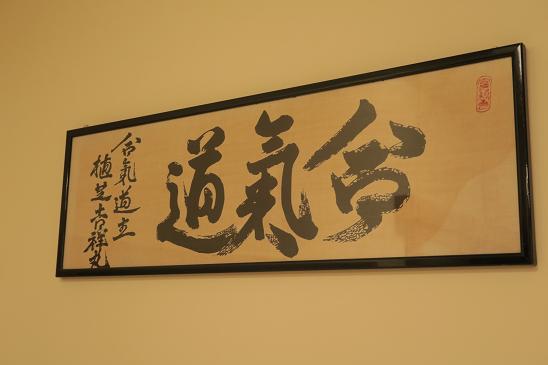 合氣道
合氣道主
植芝吉祥丸